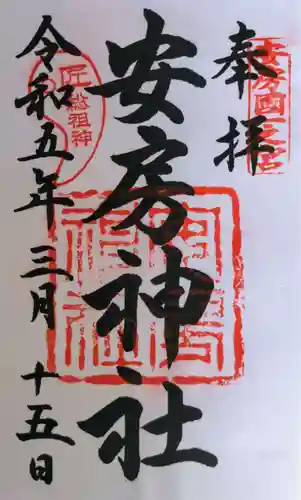 奉拝
安房國一之宮
安房神社
匠総祖神
令和五年三月十五日